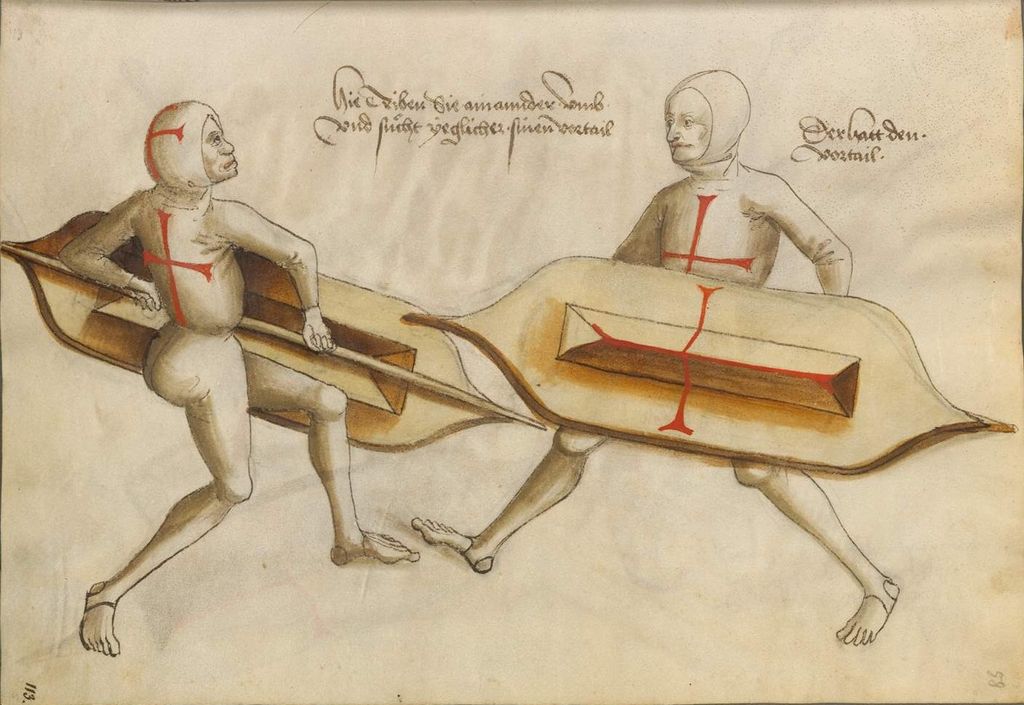 Hie Triben Sie ainannder vmb
vnd sücht yeglicher sinen vortail
Der hatt den
vortail
113
58